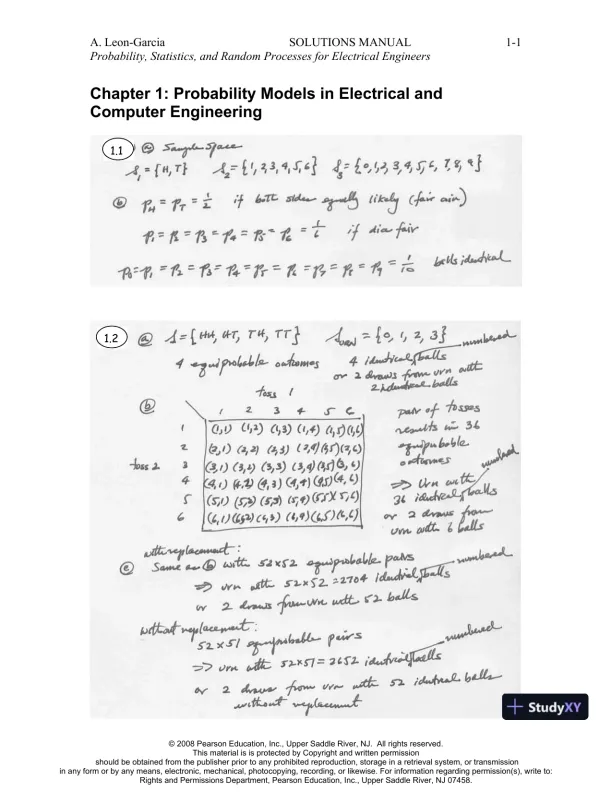 A. Leon-Garcia SOLUTIONS MANUAL 1-1
Probability, Statistics, and Random Processes for Electrical Engineers
Chapter 1: Probability Models in Electrical and
Computer Engineering
1.1 (a) Sample Space
S₁ = {H, T} S₂ = {1, 2, 3, 4, 5, 6} S₃ = {0, 1, 2, 3, 4, 5, 6, 7, 8, 9}
(b) p_H = p_T = 1/2 if both sides equally likely (fair coin)
p₁ = p₂ = p₃ = p₄ = p₅ = p₆ = 1/6 if die fair
p₀ = p₁ = p₂ = p₃ = p₄ = p₅ = p₆ = p₇ = p₈ = p₉ = 1/10 balls identical
1.2 (a) S = {HH, HT, TH, TT} S_URN = {0, 1, 2, 3}
4 equiprobable outcomes 4 identical numbered balls
or 2 draws from urn with
2 identical balls
toss 1
(b) 1 2 3 4 5 6
1 (1,1) (1,2) (1,3) (1,4) (1,5) (1,6)
2 (2,1) (2,2) (2,3) (2,4) (2,5) (2,6)
toss 2 3 (3,1) (3,2) (3,3) (3,4) (3,5) (3,6)
4 (4,1) (4,2) (4,3) (4,4) (4,5) (4,6)
5 (5,1) (5,2) (5,3) (5,4) (5,5) (5,6)
6 (6,1) (6,2) (6,3) (6,4) (6,5) (6,6)
pair of tosses
results in 36
equiprobable
outcomes
⇒ Urn with
36 identical numbered balls
or 2 draws from
urn with 6 balls
with replacement:
(c) Same as (b) with 52x52 equiprobable pairs
⇒ urn with 52x52 = 2704 identical numbered balls
or 2 draws from urn with 52 balls
without replacement:
52 x 51 equiprobable pairs
⇒ urn with 52x51 = 2652 identical numbered balls
or 2 draws from urn with 52 identical balls
without replacement
StudyXY
© 2008 Pearson Education, Inc., Upper Saddle River, NJ. All rights reserved.
This material is is protected by Copyright and written permission
should be obtained from the publisher prior to any prohibited reproduction, storage in a retrieval system, or transmission
in any form or by any means, electronic, mechanical, photocopying, recording, or likewise. For information regarding permission(s), write to:
Rights and Permissions Department, Pearson Education, Inc., Upper Saddle River, NJ 07458.